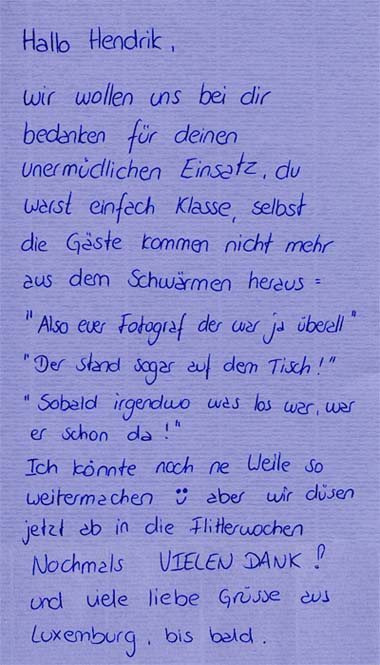 Hallo Hendrik,
wir wollen uns bei dir
bedanken für deinen
unermüdlichen Einsatz, du
warst einfach Klasse, selbst
die Gäste kommen nicht mehr
aus dem Schwärmen heraus =
"Also euer Fotograf der war ja überall"
"Der stand sogar auf dem Tisch!"
"Sobald irgendwo was los war, war
er schon da!"
Ich könnte noch ne Weile so
weitermachen ü aber wir düsen
jetzt ab in die Flitterwochen
Nochmals VIELEN DANK!
und viele liebe Grüsse aus
Luxemburg, bis bald.